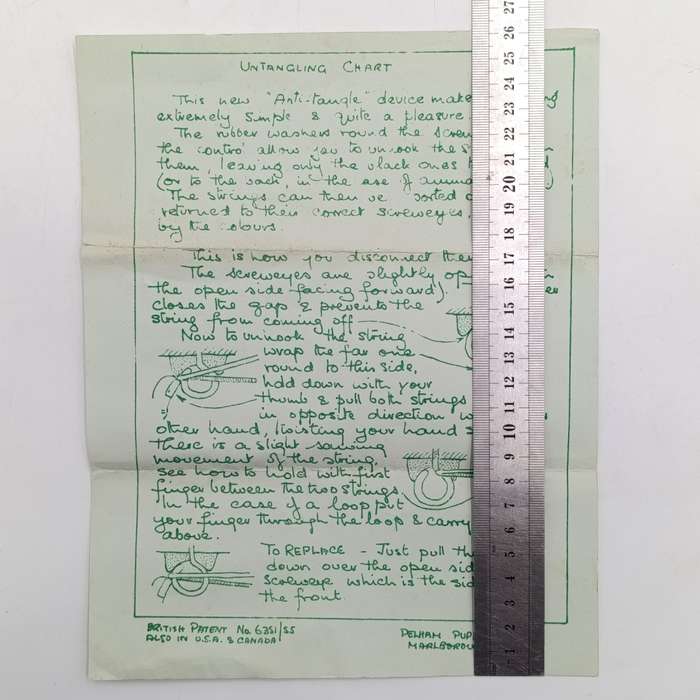 UNTANGLING CHART
This new "Anti-tangle" device make
extremely simple & quite a pleasure.
The rubber washers round the screw
the control allow you to unhook the s
them, leaving only the black ones
(or to the back, in the case of anima
The strings can then be sorted
returned to their correct screweyes,
by the colours.
This is how you disconnect them
The screweyes are slightly op
the open side facing forward).
closes the gap & prevents the
string from coming off
Now to unhook the string
wrap the far one
round to this side,
hold down with your
thumb & pull both strings
in opposite direction w
other hand, twisting your hand s
there is a slight sawing
movement of the string,
see how to hold with first
finger between the two strings.
In the case of a loop put
your finger through the loop & carry
above.
TO REPLACE - Just pull th
down over the open sid
screweye which is the sid
the front.
BRITISH PATENT No. 6351/55
ALSO IN U.S.A. & CANADA
PELHAM PUP
MARLBOROU
1 2 3 4 5 6 7 8 9 10 11 12 13 14 15 16 17 18 19 20 21 22 23 24 25 26 27